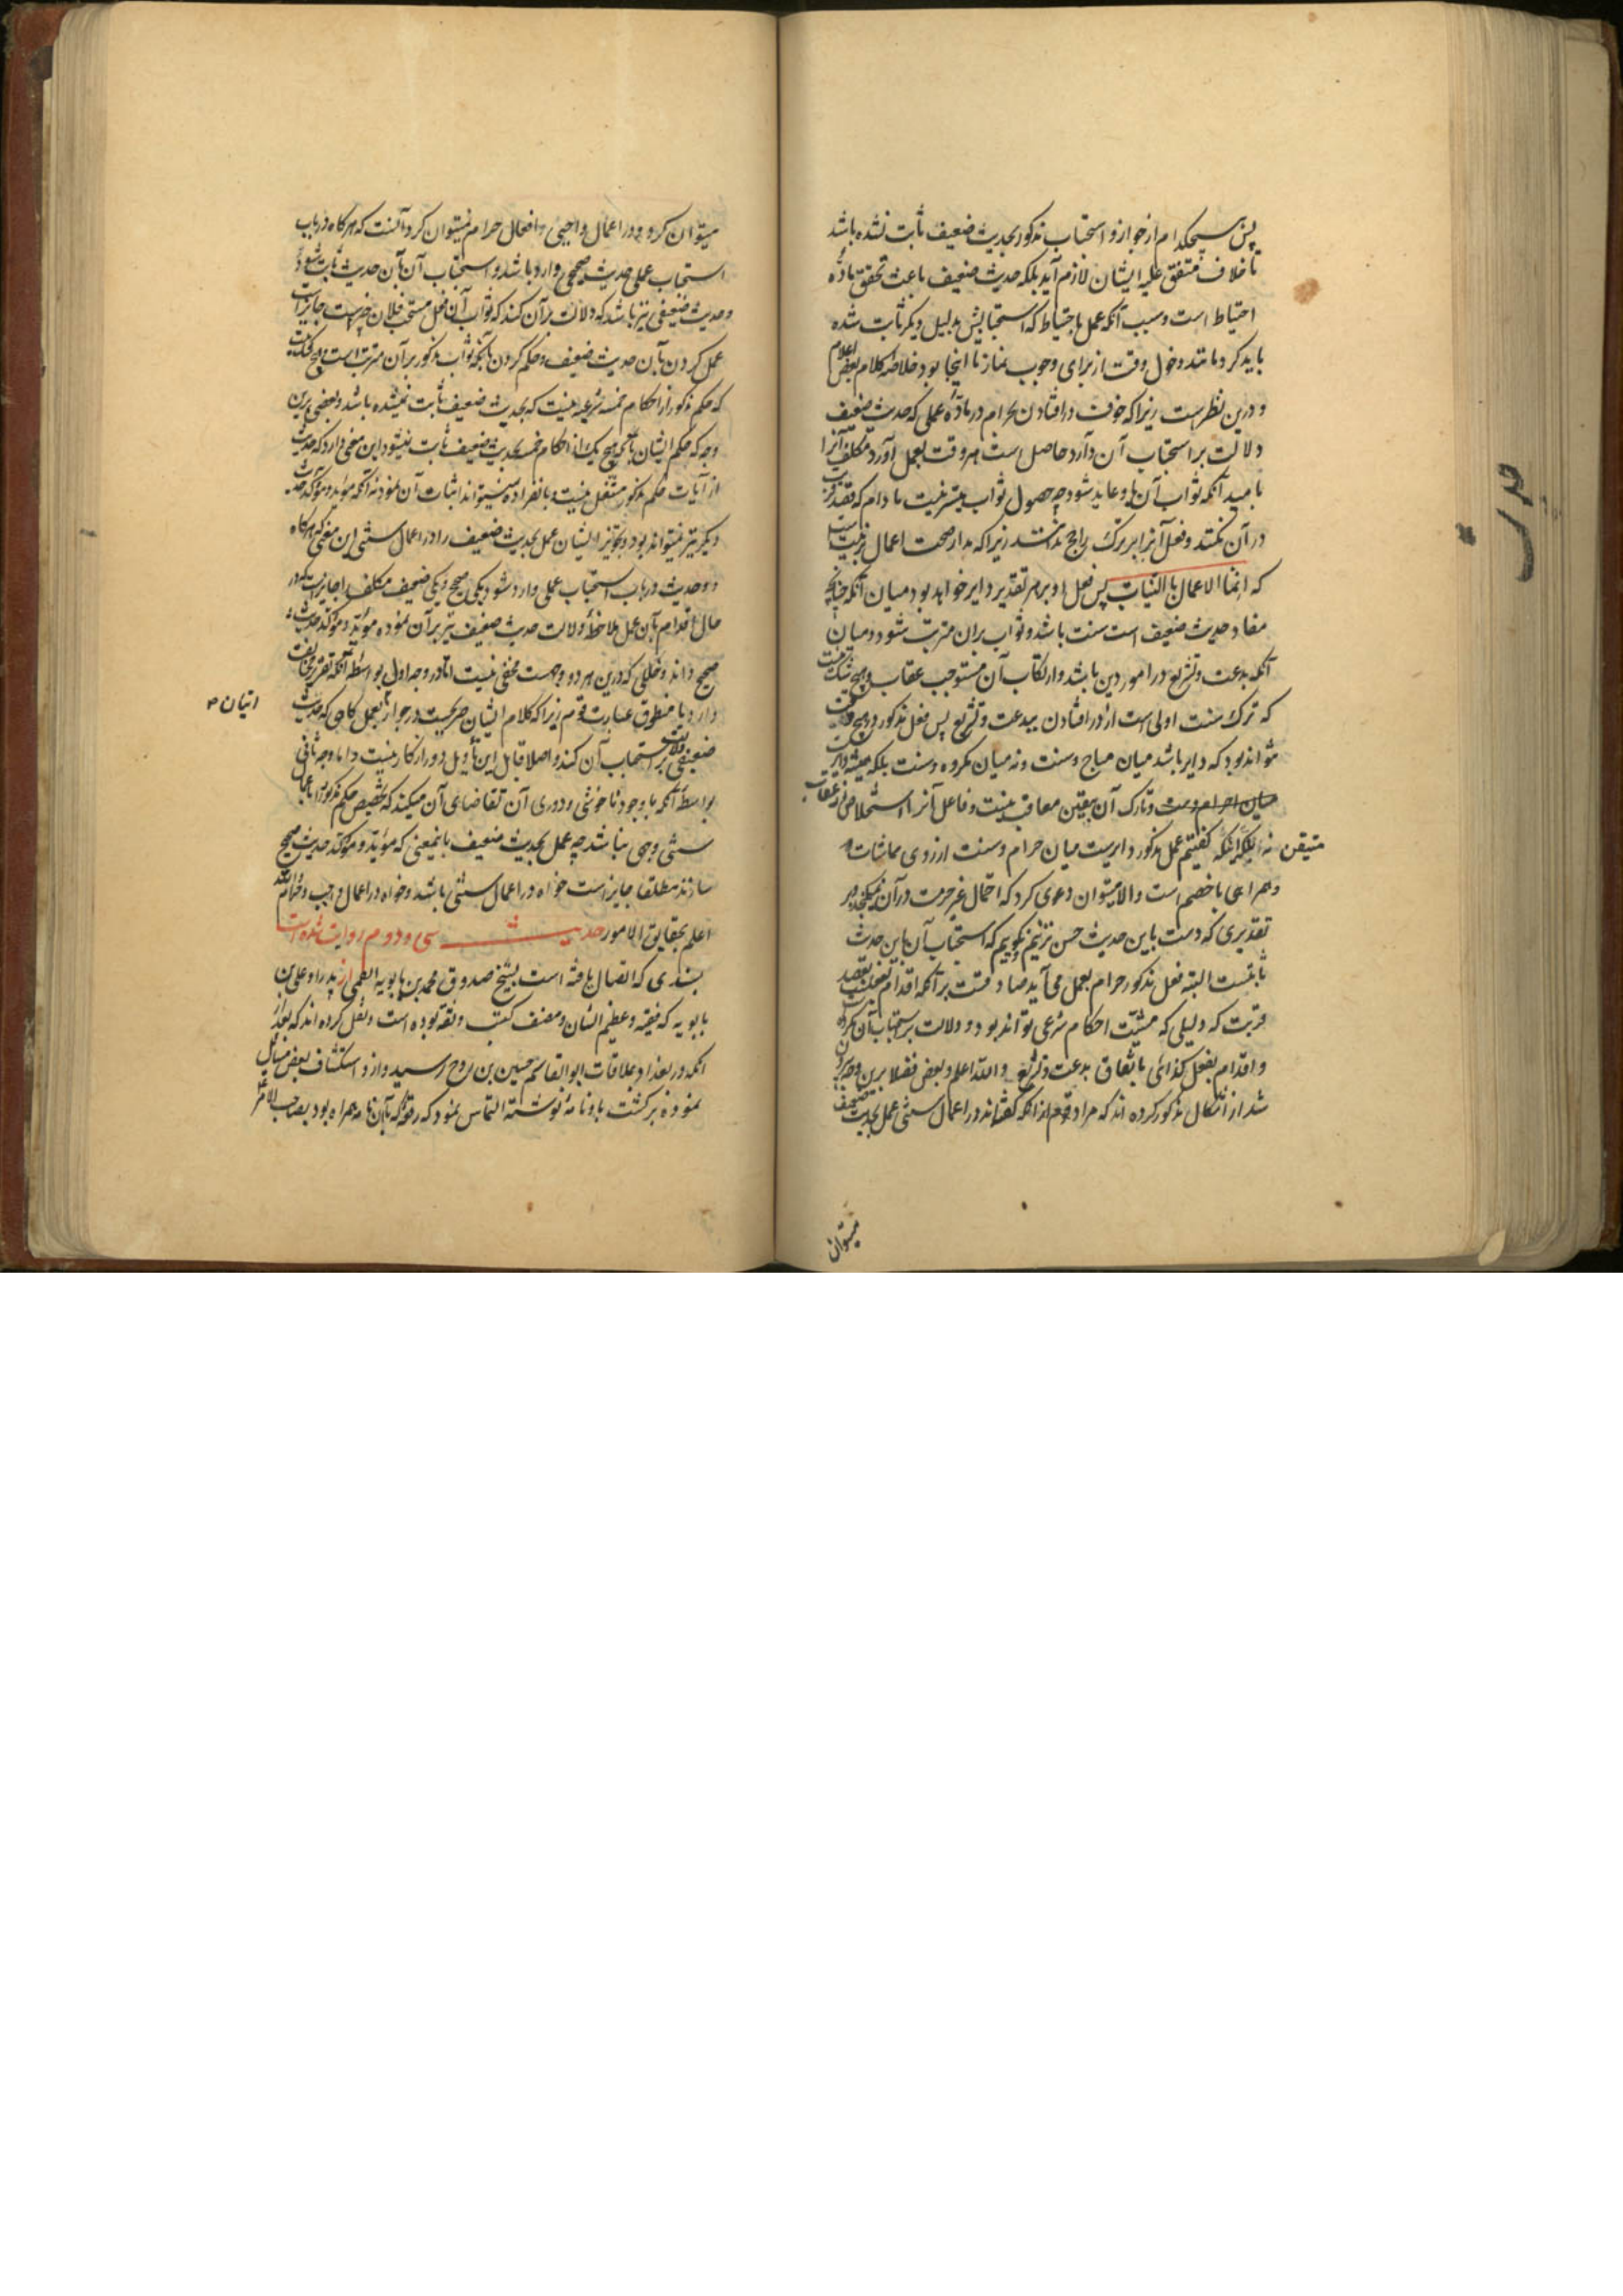 پس هیچکدام از جواز و استحباب مذکور بحدیث ضعیف ثابت نشده باشد
تا خلاف متفق علیه ایشان لازم آید بلکه حدیث ضعیف باعث تحقق ماده
احتیاط است و سبب آنکه عمل باحتیاط که استحبابش بدلیل دیگر ثابت شده
باید کرد مانند دخول وقت از برای وجوب نماز تا اینجا بود خلاصه کلام بعض اعلام
و درین نظر است زیرا که خوف در افتادن بحرام در ماده عملی که حدیث ضعیف
دلالت بر استحباب آن دارد حاصل است هر وقت بعمل آورد مکلف آنرا
بامید آنکه ثواب آن باو عاید شود چه حصول ثواب میسر نیست مادام که قصد قربت
در آن نکند و فعل آنرا بر ترک راجح نداند زیرا که مدار صحت اعمال بر نیت است
که انما الاعمال بالنیات پس فعل او برین تقدیر دایر خواهد بود میان آنکه چنانچه
مفاد حدیث ضعیف است سنت باشد و ثواب بران مترتب شود و میان
آنکه بدعت و تشریع در امور دین باشد و ارتکاب آن مستوجب عقاب و هیچ شک نیست
که ترک سنت اولی است از در افتادن ببدعت و تشریع پس فعل مذکور در هیچ وقت
نتواند بود که دایر باشد میان مباح و سنت و نه میان مکروه و سنت بلکه همیشه دایر است
میان حرام و سنت و تارک آن بیقین معاقب نیست و فاعل آنرا استخلاص از عقاب
متیقن نه با آنکه اینکه گفتیم عمل مذکور دایر است میان حرام و سنت از روی مماشات
و همراهی با خصم است والا میتوان دعوی کرد که احتمال غیر حرمت در آن نمیگنجد بر
تقدیری که دست باین حدیث حسن نزنیم و نگوییم که استحباب آن باین حدیث
ثابتست البته فعل مذکور حرام بعمل می آید صادقست بر آنکه اقدام بفعلیست بقصد
قربت که دلیلی که مثبت احکام شرعی تواند بود دلالت بر استحباب آن نکرده
و اقدام بفعل کذائی باتفاق بدعت و تشریع والله اعلم و بعض فضلا برین وجه بیرون
شد از اشکال مذکور کرده اند که مراد قوم از آنکه گفته اند در اعمال سنتی عمل بحدیث ضعیف
میتوان
میتوان کرد و در اعمال واجبی و افعال حرام نمیتوان کرد آنست که هرگاه در باب
استحباب عملی حدیث صحیحی وارد باشد و استحباب آن بآن حدیث ثابت شود و
و حدیث ضعیفی نیز باشد که دلالت بر آن کند که ثواب آن فعل مستحب فلان چیز است جایز است
عمل کردن بآن حدیث ضعیف و حکم کردن بآنکه ثواب مذکور بر آن مترتب است و هیچ شک نیست
که حکم مذکور از احکام خمسه شرعیه نیست که بحدیث ضعیف ثابت نمیشده باشد و بعضی برین
وجه که حکم ایشان بآنکه هیچ یک از احکام خمسه بحدیث ضعیف ثابت نمیشود این معنی دارد که حدیث
از آیات حکم مذکور مستقل نیست و بانفراده نمیتواند اثبات آن نمود نه آنکه مؤید و مؤکد حدیث
دیگر نیز نمیتواند بود و تجویز ایشان عمل بحدیث ضعیف را در اعمال سنتی این معنی که هرگاه
دو حدیث در باب استحباب عملی وارد شود یکی صحیح و یکی ضعیف مکلف را جایز است که در
حال اقدام بآن عمل ملاحظه دلالت حدیث ضعیف نیز بر آن نموده مؤید و مؤکد حدیث
صحیح داند و خللی که درین هر دو وجهست مخفی نیست اما در وجه اول بواسطه آنکه تقریر مخالفت
دارد با منطوق عبارت قوم زیرا که کلام ایشان صریحست در جواز اتیان بعمل کاهی که حدیث
ضعیفی دلالت بر استحباب آن کند و اصلا قابل این تأویل دور از کار نیست و اما وجه ثانی
بواسطه آنکه با وجود ناخوشی و دوری آن تقاضای آن میکند که تخصیص حکم مذکور را باعمال
سنتی وجهی نباشد چه عمل بحدیث ضعیف باینمعنی که مؤید و مؤکد حدیث صحیح
سازند مطلقا جایز است خواه در اعمال سنتی باشد و خواه در اعمال واجب و حرام والله
اعلم بحقایق الامور حدیث سی و دوم روایت شده است
بسندی که اتصال یافته است بشیخ صدوق محمد بن بابویه القمی از پدر او علی بن
بابویه که فقیه و عظیم الشان و مصنف کتب و ثقه بوده است و نقل کرده اند که بعد از
آنکه در بغداد بملاقات ابوالقاسم حسین بن روح رسید و از و استکشاف بعض مسایل
نموده برگشت باو نامه نوشته التماس نمود که رقعه که بآن نامه همراه بود بصاحب الامر
اتیان